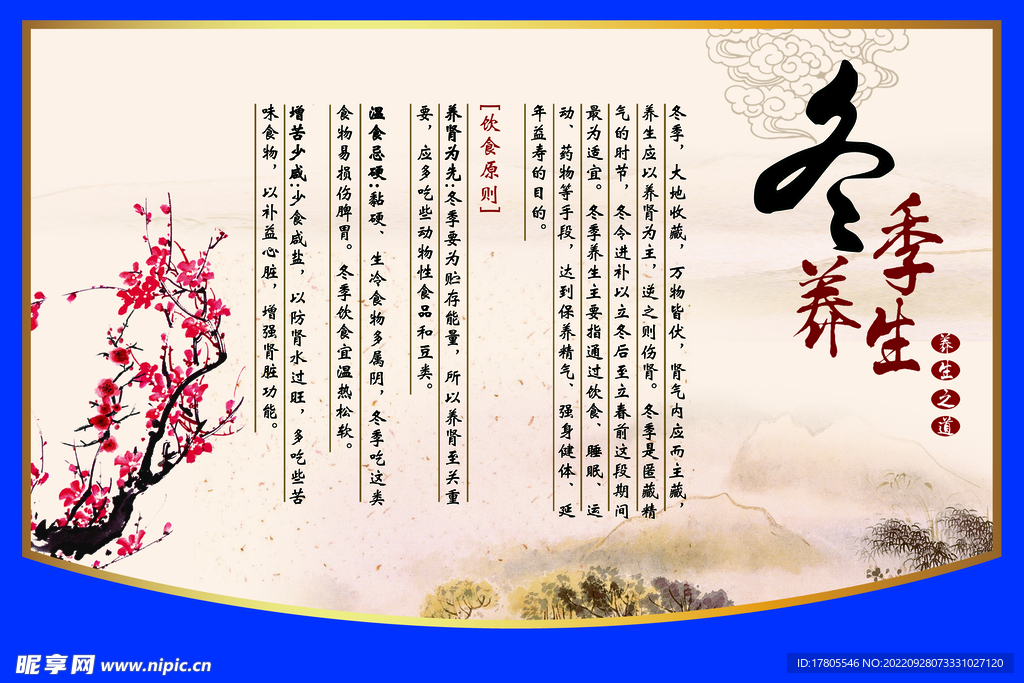 冬季养生
养生之道
冬季，大地收藏，万物皆伏，肾气内应而主藏，
养生应以养肾为主，逆之则伤肾。冬季是匿藏精
气的时节，冬令进补以立冬后至立春前这段期间
最为适宜。冬季养生主要指通过饮食、睡眠、运
动、药物等手段，达到保养精气、强身健体、延
年益寿的目的。
[饮食原则]
养肾为先:冬季要为贮存能量，所以养肾至关重
要，应多吃些动物性食品和豆类。
温食忌硬:黏硬、生冷食物多属阴，冬季吃这类
食物易损伤脾胃。冬季饮食宜温热松软。
增苦少咸:少食咸盐，以防肾水过旺，多吃些苦
味食物，以补益心脏，增强肾脏功能。
昵享网 www.nipic.cn
ID:17805546 NO:20220928073331027120